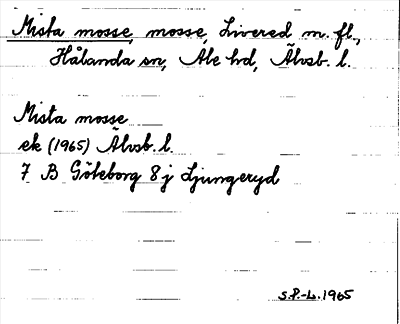 Mista mosse, mosse, Livered m. fl.,
Hålanda sn, Ale hd, Älvsb. l.
Mista mosse
ek (1965) Älvsb. l.
7 B Göteborg 8 j Ljungeryd
S.P.-L. 1965